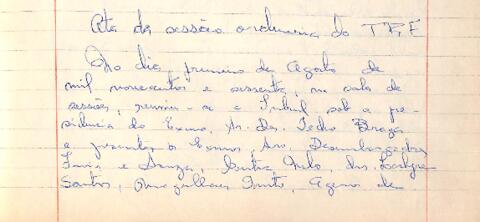 Ata da sessão ordinaria do TRE
No dia primeiro de Agosto de
mil novecentos e sessenta, na sala de
sessões, reuniu-se o Tribunal sob a pre-
sidencia do Exmo. Sr. Des. Pedro Braga
e presentes os Exmos. Srs. Desembargadores
Faria e Souza, Dutra, drs.
Santos, Magalhães Pinto, de